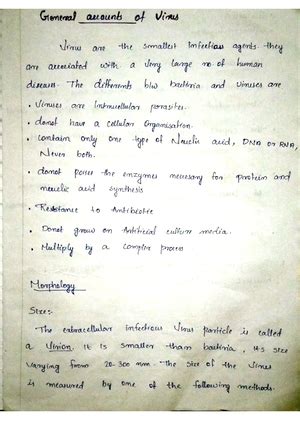 General accounts of Virus
Virus are the smallest infectious agents they
are associated with a very large no. of human
disease. The differents b/w bacteria and viruses are
• Viruses are Intracellular parasites.
• donot have a cellular Organisation.
• contain only one type of Nucleic acid, DNA or RNA,
Never both.
• donot posse the enzymes necessary for protein and
nucleic acid synthesis
• Resistance to Antibiotic
• Donot grow on Artificial culture media.
• Multiply by a complex process
Morphology
Size:-
The extracellular infectious Virus particle is called
a Virion. It is smaller than bacteria, it's size
varying from 20-300 nm. The size of the virus
is measured by one of the following methods.